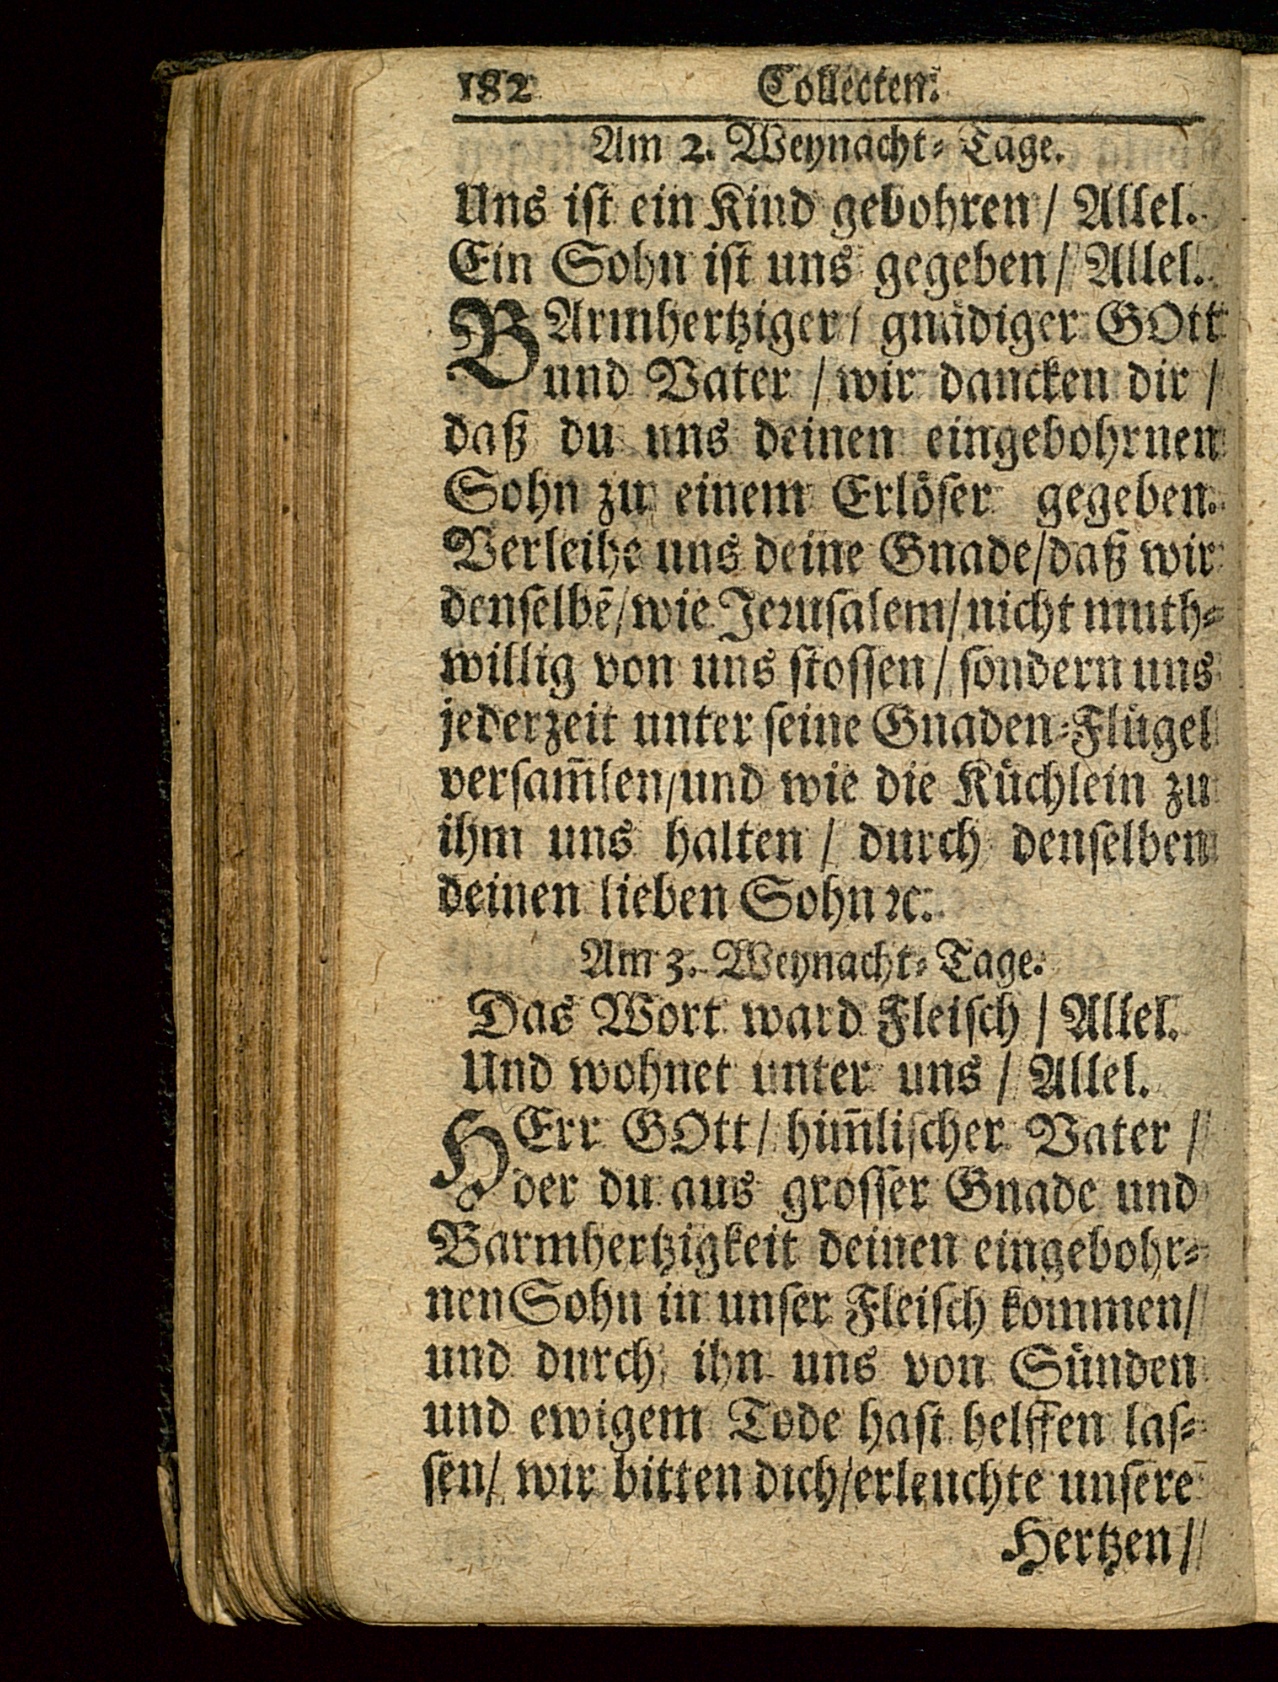 182 Collecten.
Am 2. Weynacht-Tage.
Uns ist ein Kind gebohren / Allel.
Ein Sohn ist uns gegeben / Allel.
BArmhertziger / gnädiger GOtt
und Vater / wir dancken dir /
daß du uns deinen eingebohrnen
Sohn zu einem Erlöser gegeben.
Verleihe uns deine Gnade/daß wir
denselbē/wie Jerusalem/nicht muth-
willig von uns stossen / sondern uns
jederzeit unter seine Gnaden-Flügel
versam̄len/und wie die Küchlein zu
ihm uns halten / durch denselben
deinen lieben Sohn ꝛc.
Am 3. Weynacht-Tage.
Das Wort ward Fleisch / Allel.
Und wohnet unter uns / Allel.
HErr GOtt / him̄lischer Vater /
der du aus grosser Gnade und
Barmhertzigkeit deinen eingebohr-
nen Sohn in unser Fleisch kommen/
und durch ihn uns von Sünden
und ewigem Tode hast helffen las-
sen/ wir bitten dich/erleuchte unsere
Hertzen /